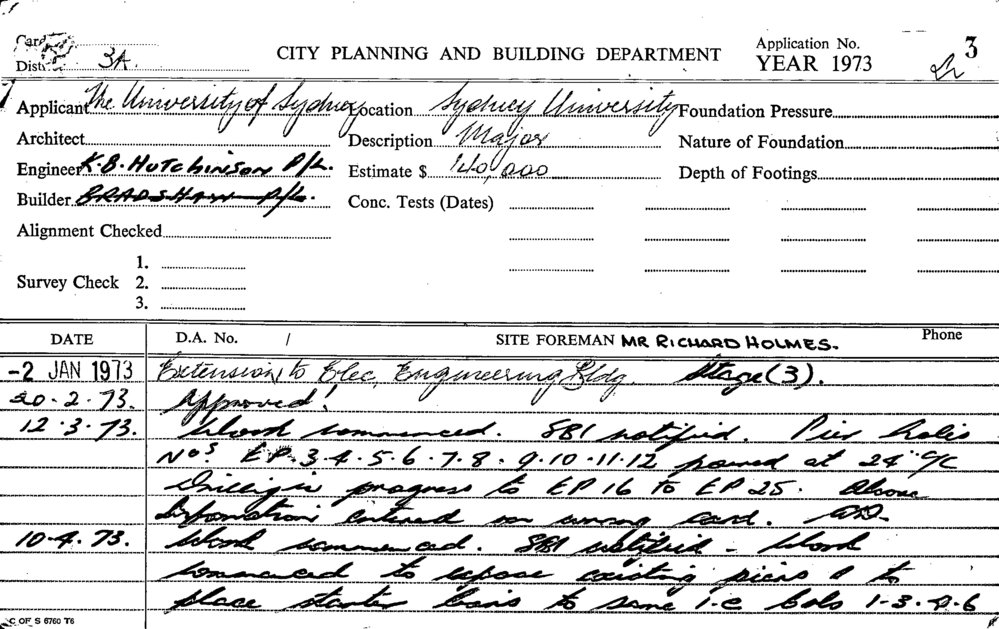 Card
Dist. 3A
CITY PLANNING AND BUILDING DEPARTMENT
Application No. 3
YEAR 1973
Applicant The University of Sydney Location Sydney University Foundation Pressure
Architect Description Major Nature of Foundation
Engineer K.B. HUTCHINSON P/L. Estimate $ 140,000 Depth of Footings
Builder BRADSHAW P/L. Conc. Tests (Dates)
Alignment Checked
Survey Check 1.
2.
3.
DATE D.A. No. / SITE FOREMAN MR RICHARD HOLMES. Phone
-2 JAN 1973 Extension to Elec. Engineering Bldg. Stage (3).
20.2.73. Approved.
12.3.73. Work commenced. SBI notified. Pier holes
Nos EP.3.4.5.6.7.8.9.10.11.12 poured at 24"
Drilling in progress to EP 16 to EP 25. Above
Information entered on wrong card.
10.4.73. Work commenced. SBI notified - Work
commenced to expose existing piers & to
place starter bars to same i-e Cols 1-3.
C OF S 6760 T6